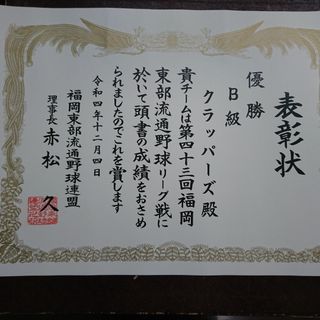 表彰状
優勝
B級
クラッパーズ殿
貴チームは第四十三回福岡
東部流通野球リーグ戦に
於いて頭書の成績をおさめ
られましたのでこれを賞します
令和四年十二月四日
福岡東部流通野球連盟
理事長 赤松 久